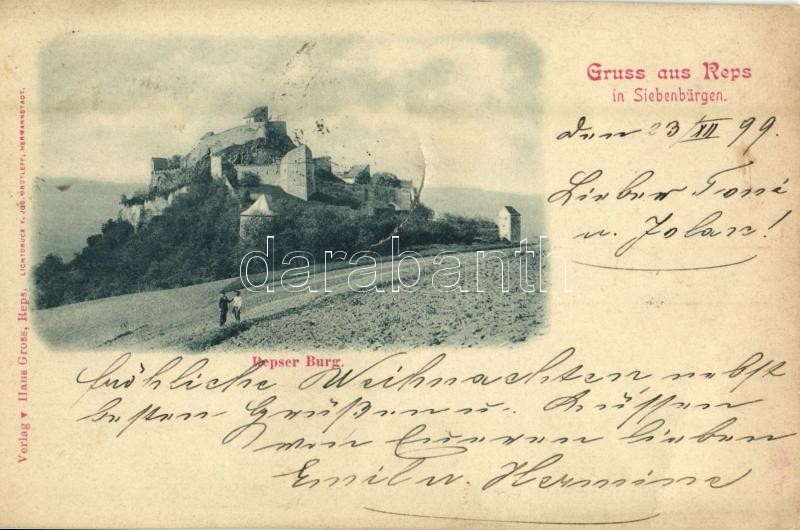 Gruss aus Reps
in Siebenbürgen.
den 23/XII 99.
Lieber Toni
u. Jolan!
darabanth
Repser Burg.
fröhliche Weihnachten, nebst
besten Grüßen u. Küssen
von Eueren lieben
Emil u. Hermine
Verlag v. Hans Gross, Reps.
LICHTDRUCK V. JOS. DROTLEFF, HERMANNSTADT.